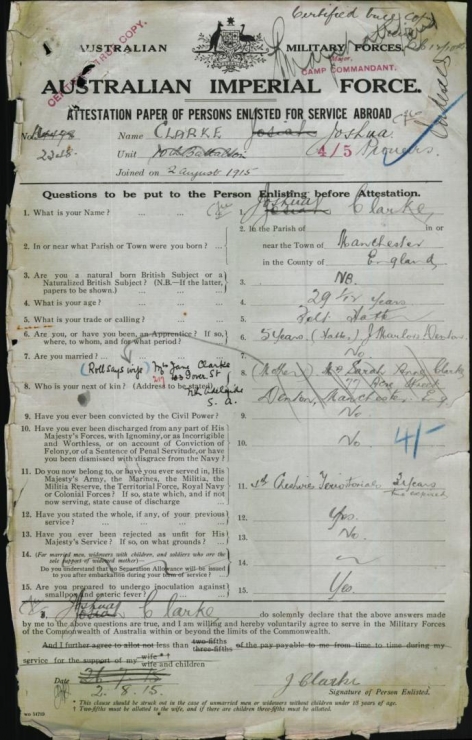 1
Certified true copy
AUSTRALIAN MILITARY FORCES.
CERTIFIED TRUE COPY.
CAMP COMMANDANT.
AUSTRALIAN IMPERIAL FORCE.
ATTESTATION PAPER OF PERSONS ENLISTED FOR SERVICE ABROAD
No. 2218 Name CLARKE Josiah Joshua
Unit Battalion 4/5 Pioneers.
Joined on 2 August 1915
Questions to be put to the Person Enlisting before Attestation.
1. What is your Name? ... ... 1. Joshua Josiah Clarke
2. In or near what Parish or Town were you born? ... 2. In the Parish of in or
near the Town of Manchester
in the County of England
3. Are you a natural born British Subject or a
Naturalized British Subject? (N.B.—If the latter,
papers to be shown.) 3. NB.
4. What is your age? 4. 29 years
5. What is your trade or calling? 5. Felt Hatter
6. Are you, or have you been, an Apprentice? If so,
where, to whom, and for what period? 6. 5 years. (Hatter.) J Denton
7. Are you married? ... 7. No
(Roll says wife) Mrs Jane Clarke
Gover St
Nth Adelaide
S. A.
8. Who is your next of kin? (Address to be stated) 8. (Mother) Mrs Sarah Anne Clarke
77 Acre Street
Denton, Manchester, Eng
9. Have you ever been convicted by the Civil Power? 9. No
10. Have you ever been discharged from any part of His
Majesty's Forces, with Ignominy, or as Incorrigible
and Worthless, or on account of Conviction of
Felony, or of a Sentence of Penal Servitude, or have
you been dismissed with disgrace from the Navy? 10. No. 4/-
11. Do you now belong to, or have you ever served in, His
Majesty's Army, the Marines, the Militia, the
Militia Reserve, the Territorial Force, Royal Navy
or Colonial Forces? If so, state which, and if not
now serving, state cause of discharge 11. Cheshire Territorials 3 years
time expired
12. Have you stated the whole, if any, of your previous
service? 12. Yes.
13. Have you ever been rejected as unfit for His
Majesty's Service? If so, on what grounds? 13. No.
14. (For married men, widowers with children, and soldiers who are the
sole support of widowed mother)—
Do you understand that no Separation Allowance will be issued
to you after embarkation during your term of service? 14.
15. Are you prepared to undergo inoculation against
smallpox and enteric fever? 15. Yes.
I, Joshua Josiah Clarke do solemnly declare that the above answers made
by me to the above questions are true, and I am willing and hereby voluntarily agree to serve in the Military Forces
of the Commonwealth of Australia within or beyond the limits of the Commonwealth.
And I further agree to allot not less than two-fifths three-fifths of the pay payable to me from time to time during my
service for the support of my wife * † wife and children
Date
2. 8. 15. J Clarke
Signature of Person Enlisted.
* This clause should be struck out in the case of unmarried men or widowers without children under 18 years of age.
† Two-fifths must be allotted to the wife, and if there are children three-fifths must be allotted.